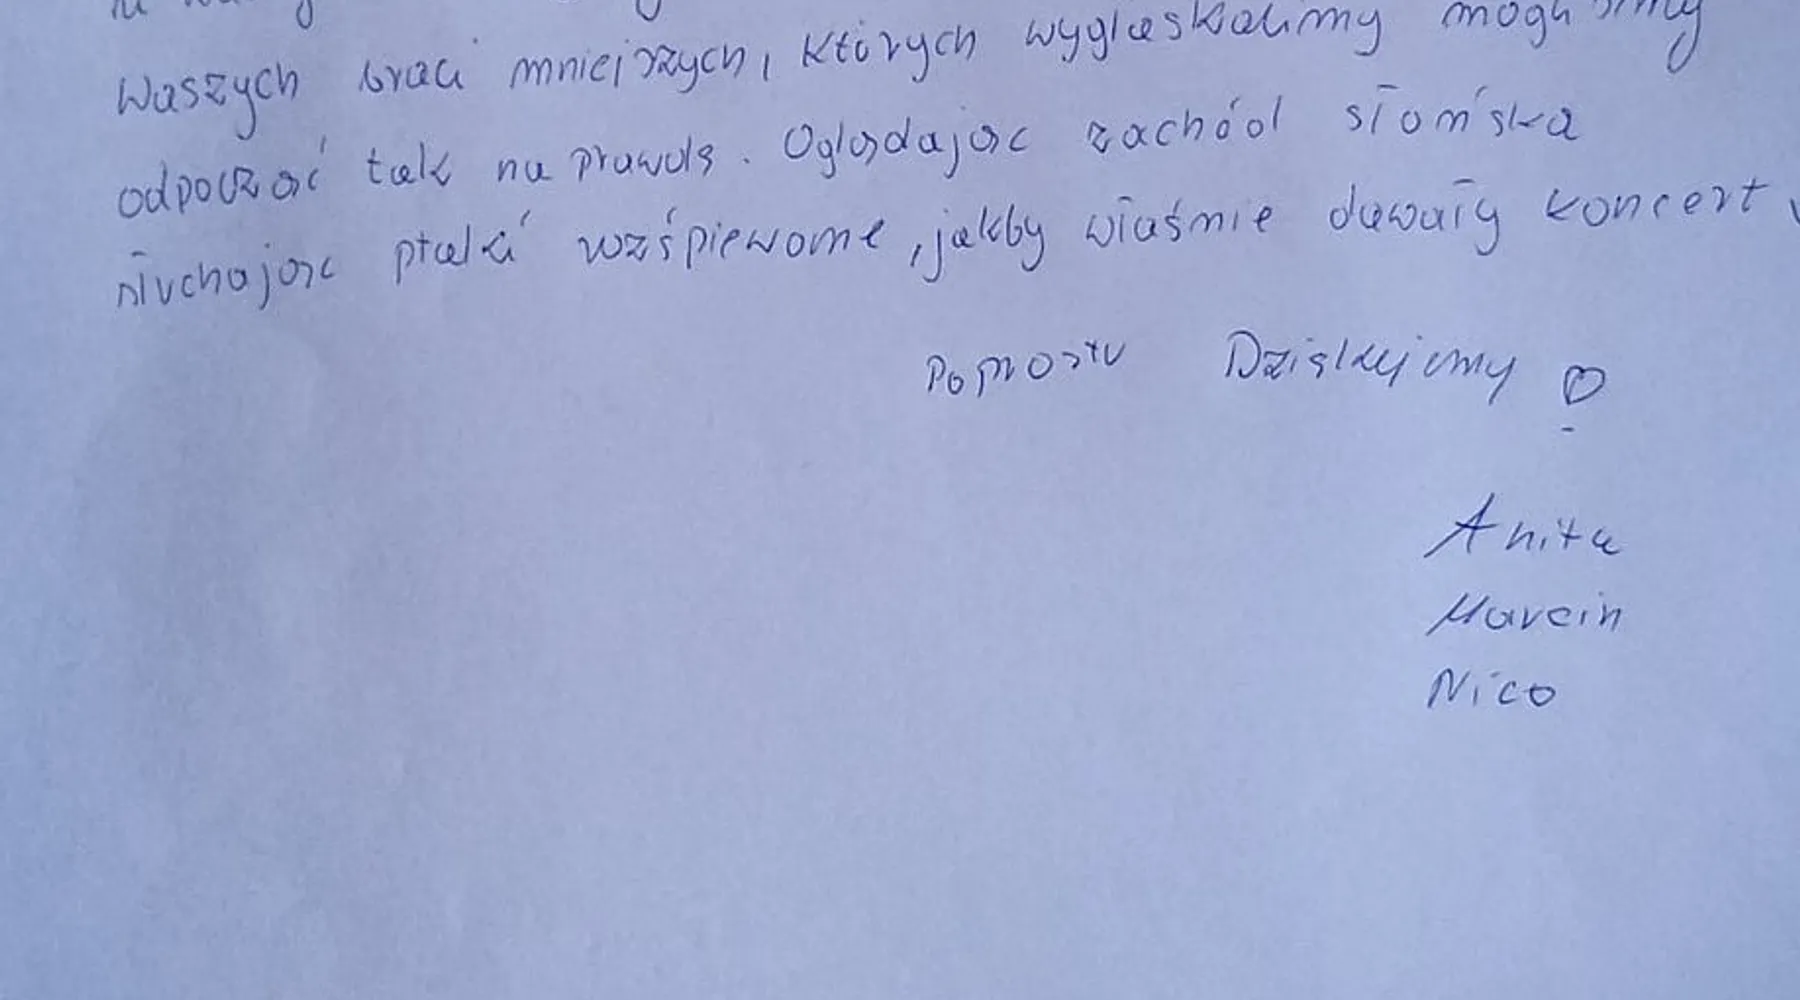 Waszych braci mniejszych, których wygłaskaliśmy mogliśmy
odpocząć tak na prawdę. Oglądając zachód słońska
słuchając ptaki rozśpiewane, jakby właśnie dawały koncert
Poprostu Dziękujemy ♡
Anita
Marcin
Nico